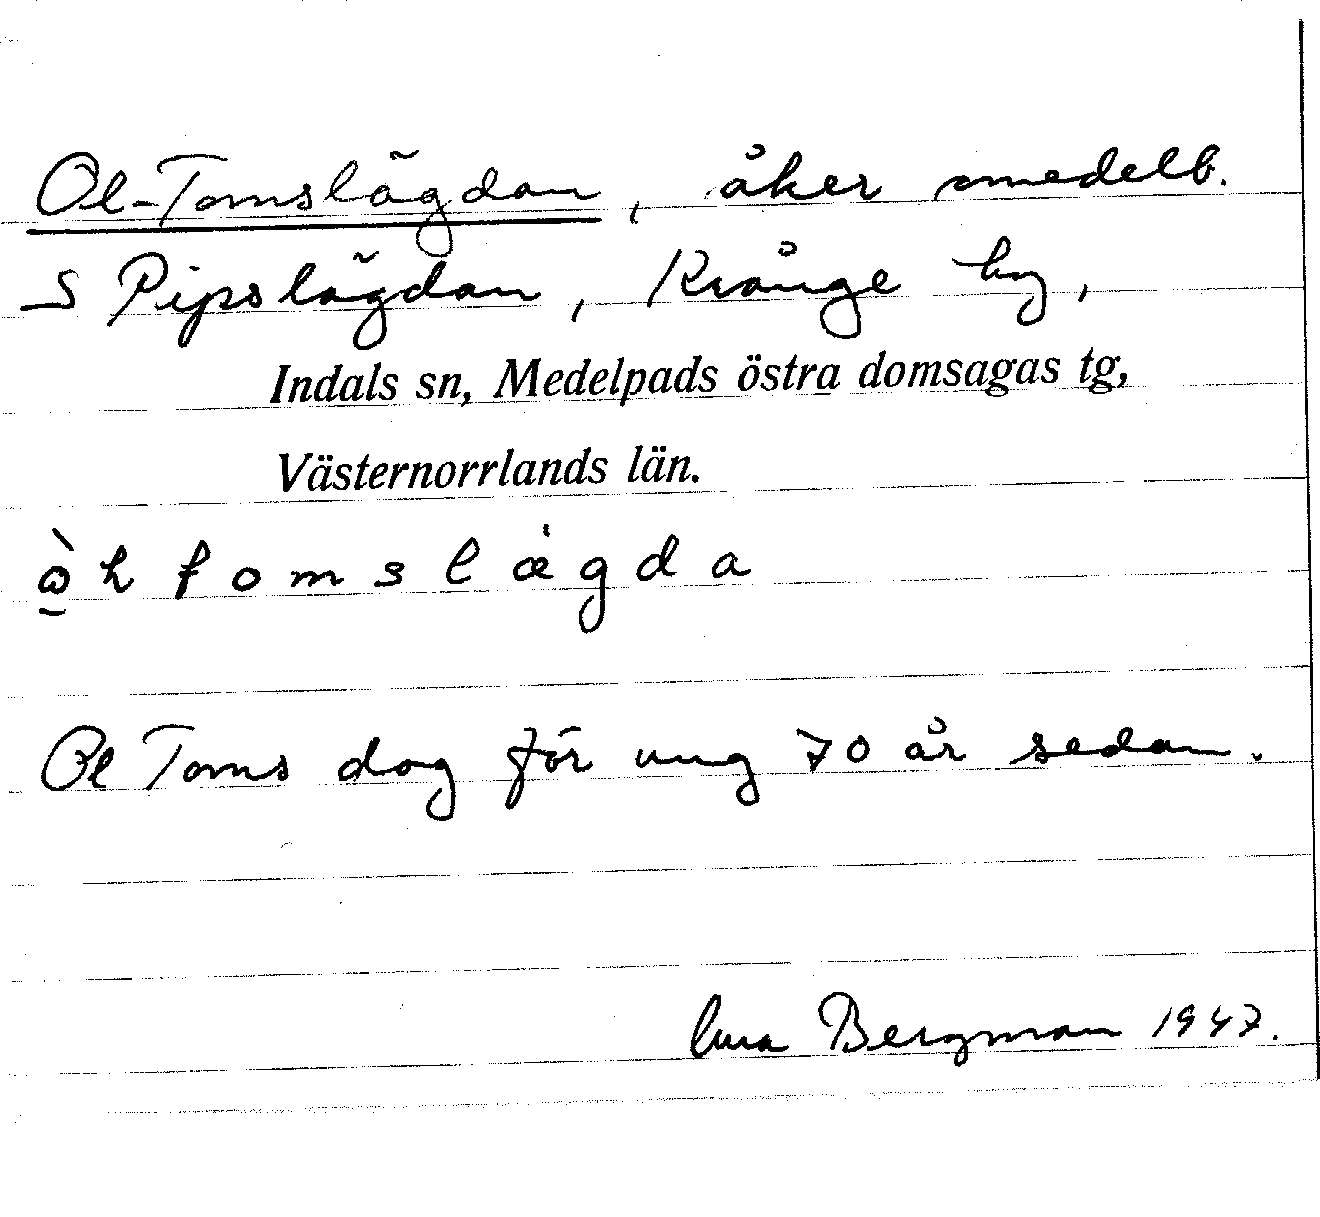 Ol-Tomslägdan, åker omedelb.
S Pipslägdan, Kvånge by,
Indals sn, Medelpads östra domsagas tg,
Västernorrlands län.
tomslægda
Ol Toms dog för ung 70 år sedan.
Bergman 1947.